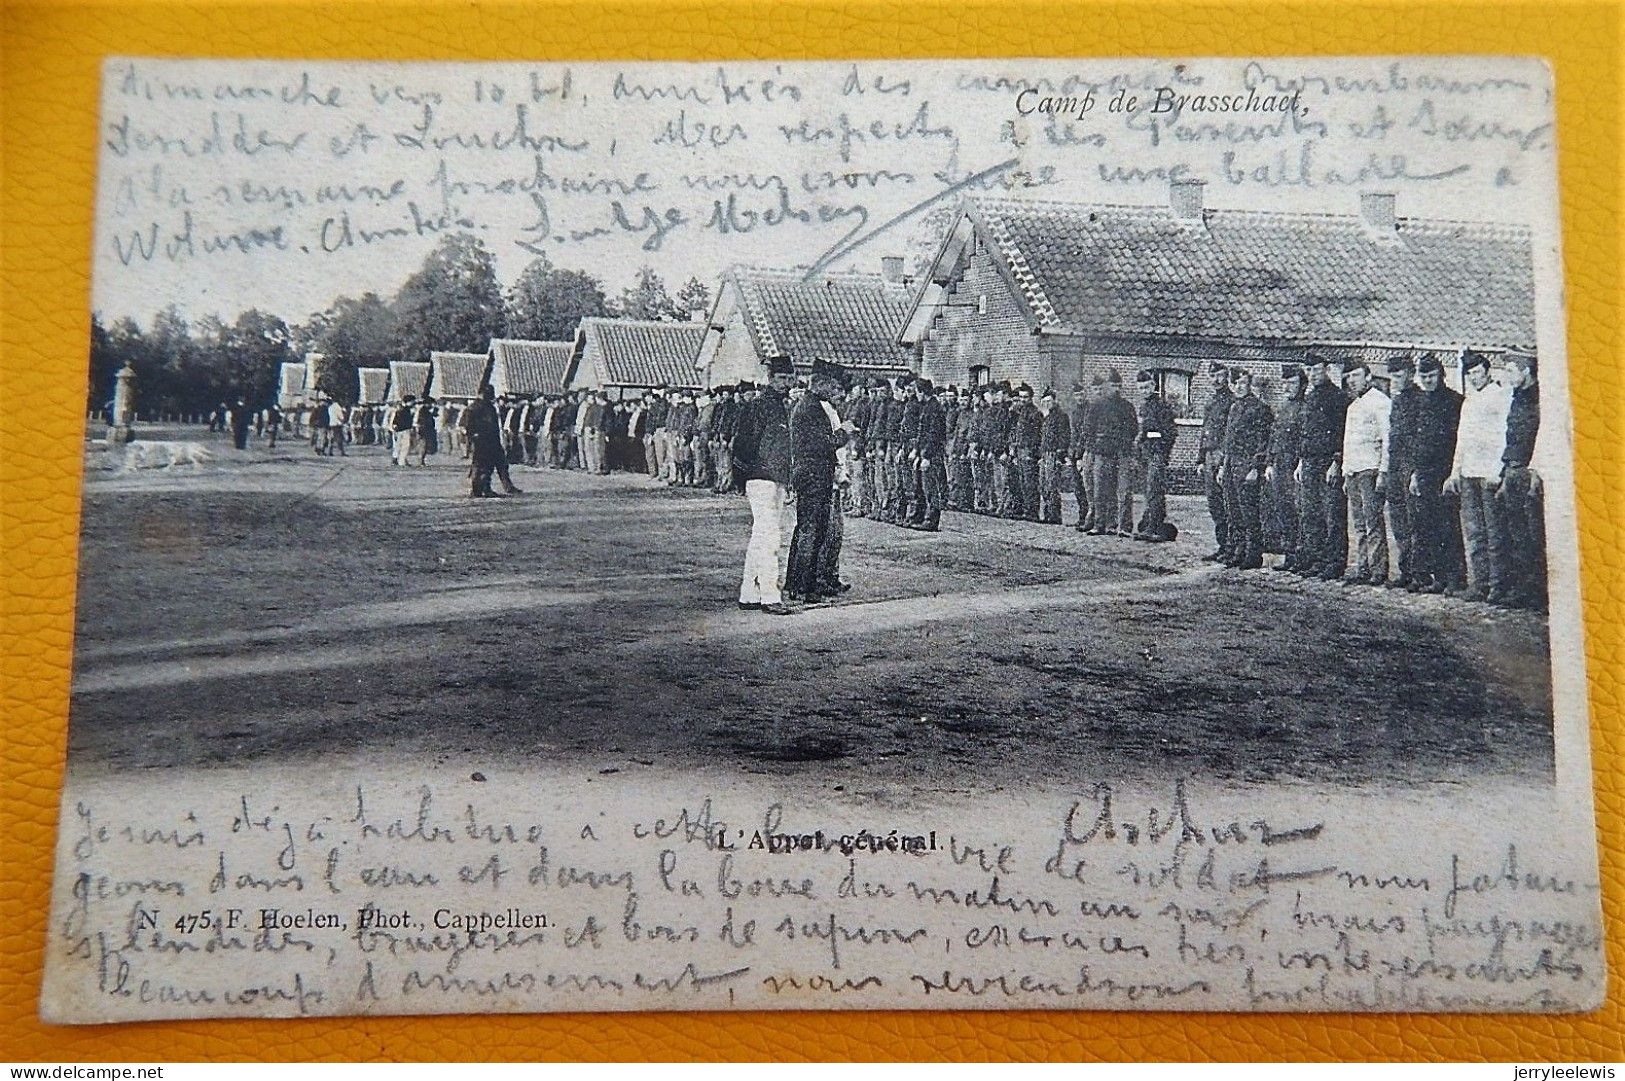 dimanche vers 10 H, amitiés des camarades Rosenbaum,
Camp de Brasschaet,
Deridder et Louckx, Mes respects à tes Parents et Soeur
A la semaine prochaine nous irons faire une ballade à
Woluwe. Amitiés.
L'Appel général.
Arthur
Je suis déjà habitué à cette bonne vie de soldat, nous patau-
geons dans l'eau et dans la boue du matin au soir, mais paysages
N 475, F. Hoelen, Phot., Cappellen.
splendides, bruyères et bois de sapin, exercices très intéressants,
beaucoup d'amusement, nous reviendrons probablement
delcampe.net
jerryleelewis